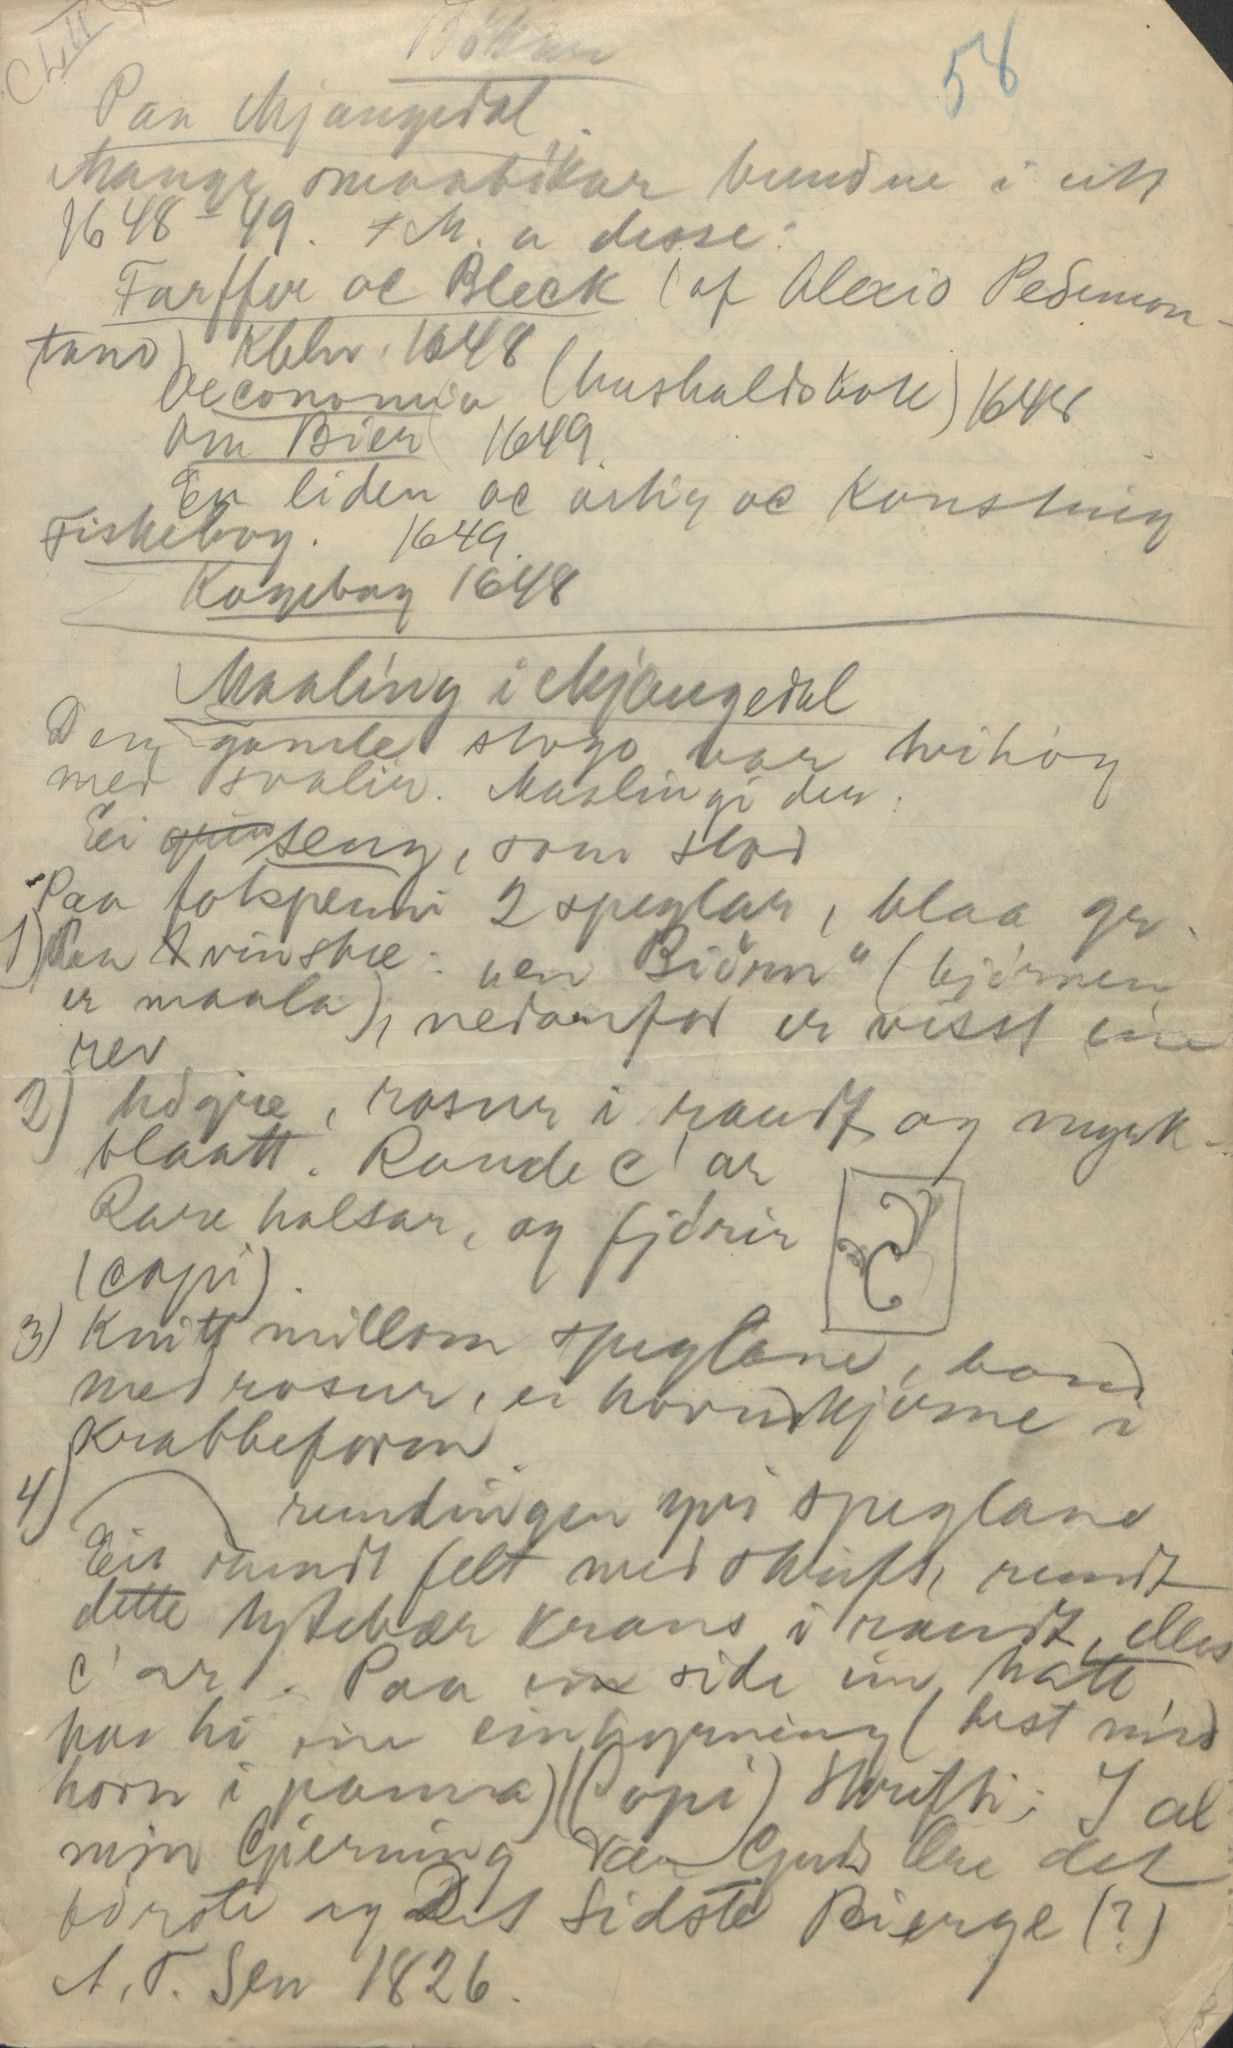 Bökar
58
Paa Mjaugedal
Mange smaabökar bundne i eitt
1648-49. M. a desse:
Farffve oc Bleck (af Alexio Pedemon-
tano) Kbhv. 1648
Oeconomia (hushaldsbok) 1648
Om Bier 1649.
En liden oc artig oc Konstrig
Fiskebog. 1649.
Kogebog 1648
Maaling i Mjaugedal
Den gamle stogo var tvihög
med svalir. Maaling i den:
Ei seng, som stod
Paa fotspenni 2 speglar, blaa gr.
1) Paa vinstre: "en Biörn" (björnen
er maala), nedanfod er visst ein
rev
2) högre, rosur i raudt og myrk-
blaatt. Raude C'ar
Rare halsar, og fjörir
(copi).
3) Knitt millom speglane, band
med rosur, ei hovudkjerne i
Krabbeform
4) rundingen yvi speglane
Eit rundt felt med skrift, rundt
dette tytebær krans i raudt, elles
C'ar. Paa ei side ein katt
paa hi ein einhyrning (hest med
horn i panna) (Copi) Skrifti: I al
min Gierning Vær Guds Ære det
förste og Det Sidste Bierge (?)
A. T. Sen 1826.